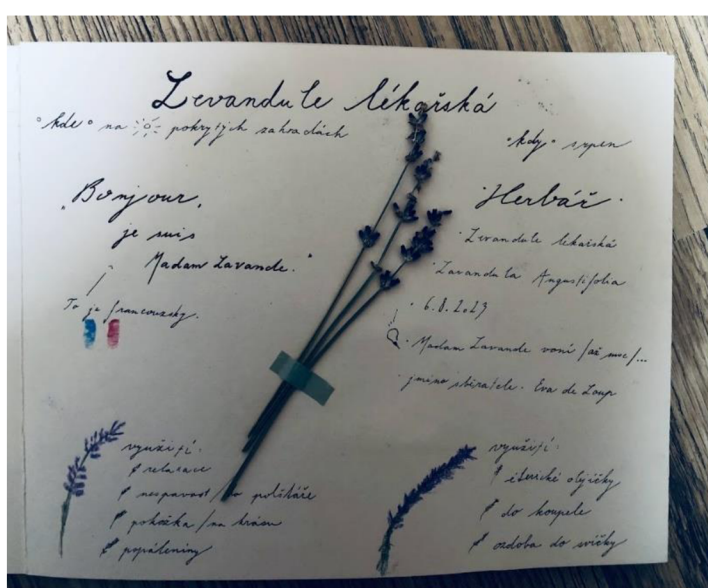 Levandule lékařská
°kde° na pokrytých zahradách
°kdy° srpen
Bonjour,
je suis
Madam Lavande.
To je francouzsky.
Herbář
Levandule lékařská
Lavandula Angustifolia
6.8.2023
Madam Lavande voní /až moc/...
jméno sběratele. Eva de Loup
využití:
relaxace
nespavost/do polštáře
pokožka/na krásu
popáleniny
využití:
éterické olejíčky
do koupele
ozdoba do svíčky